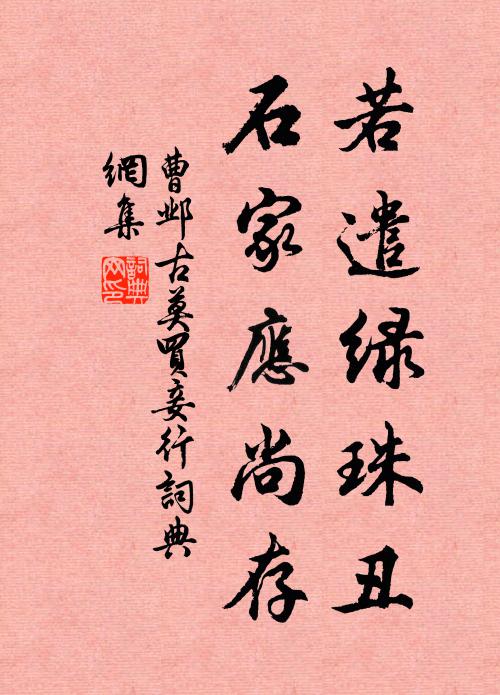 若遣绿珠丑
石家應尚存
曹邺古莫買妾行詞典
網集
詞典
网印